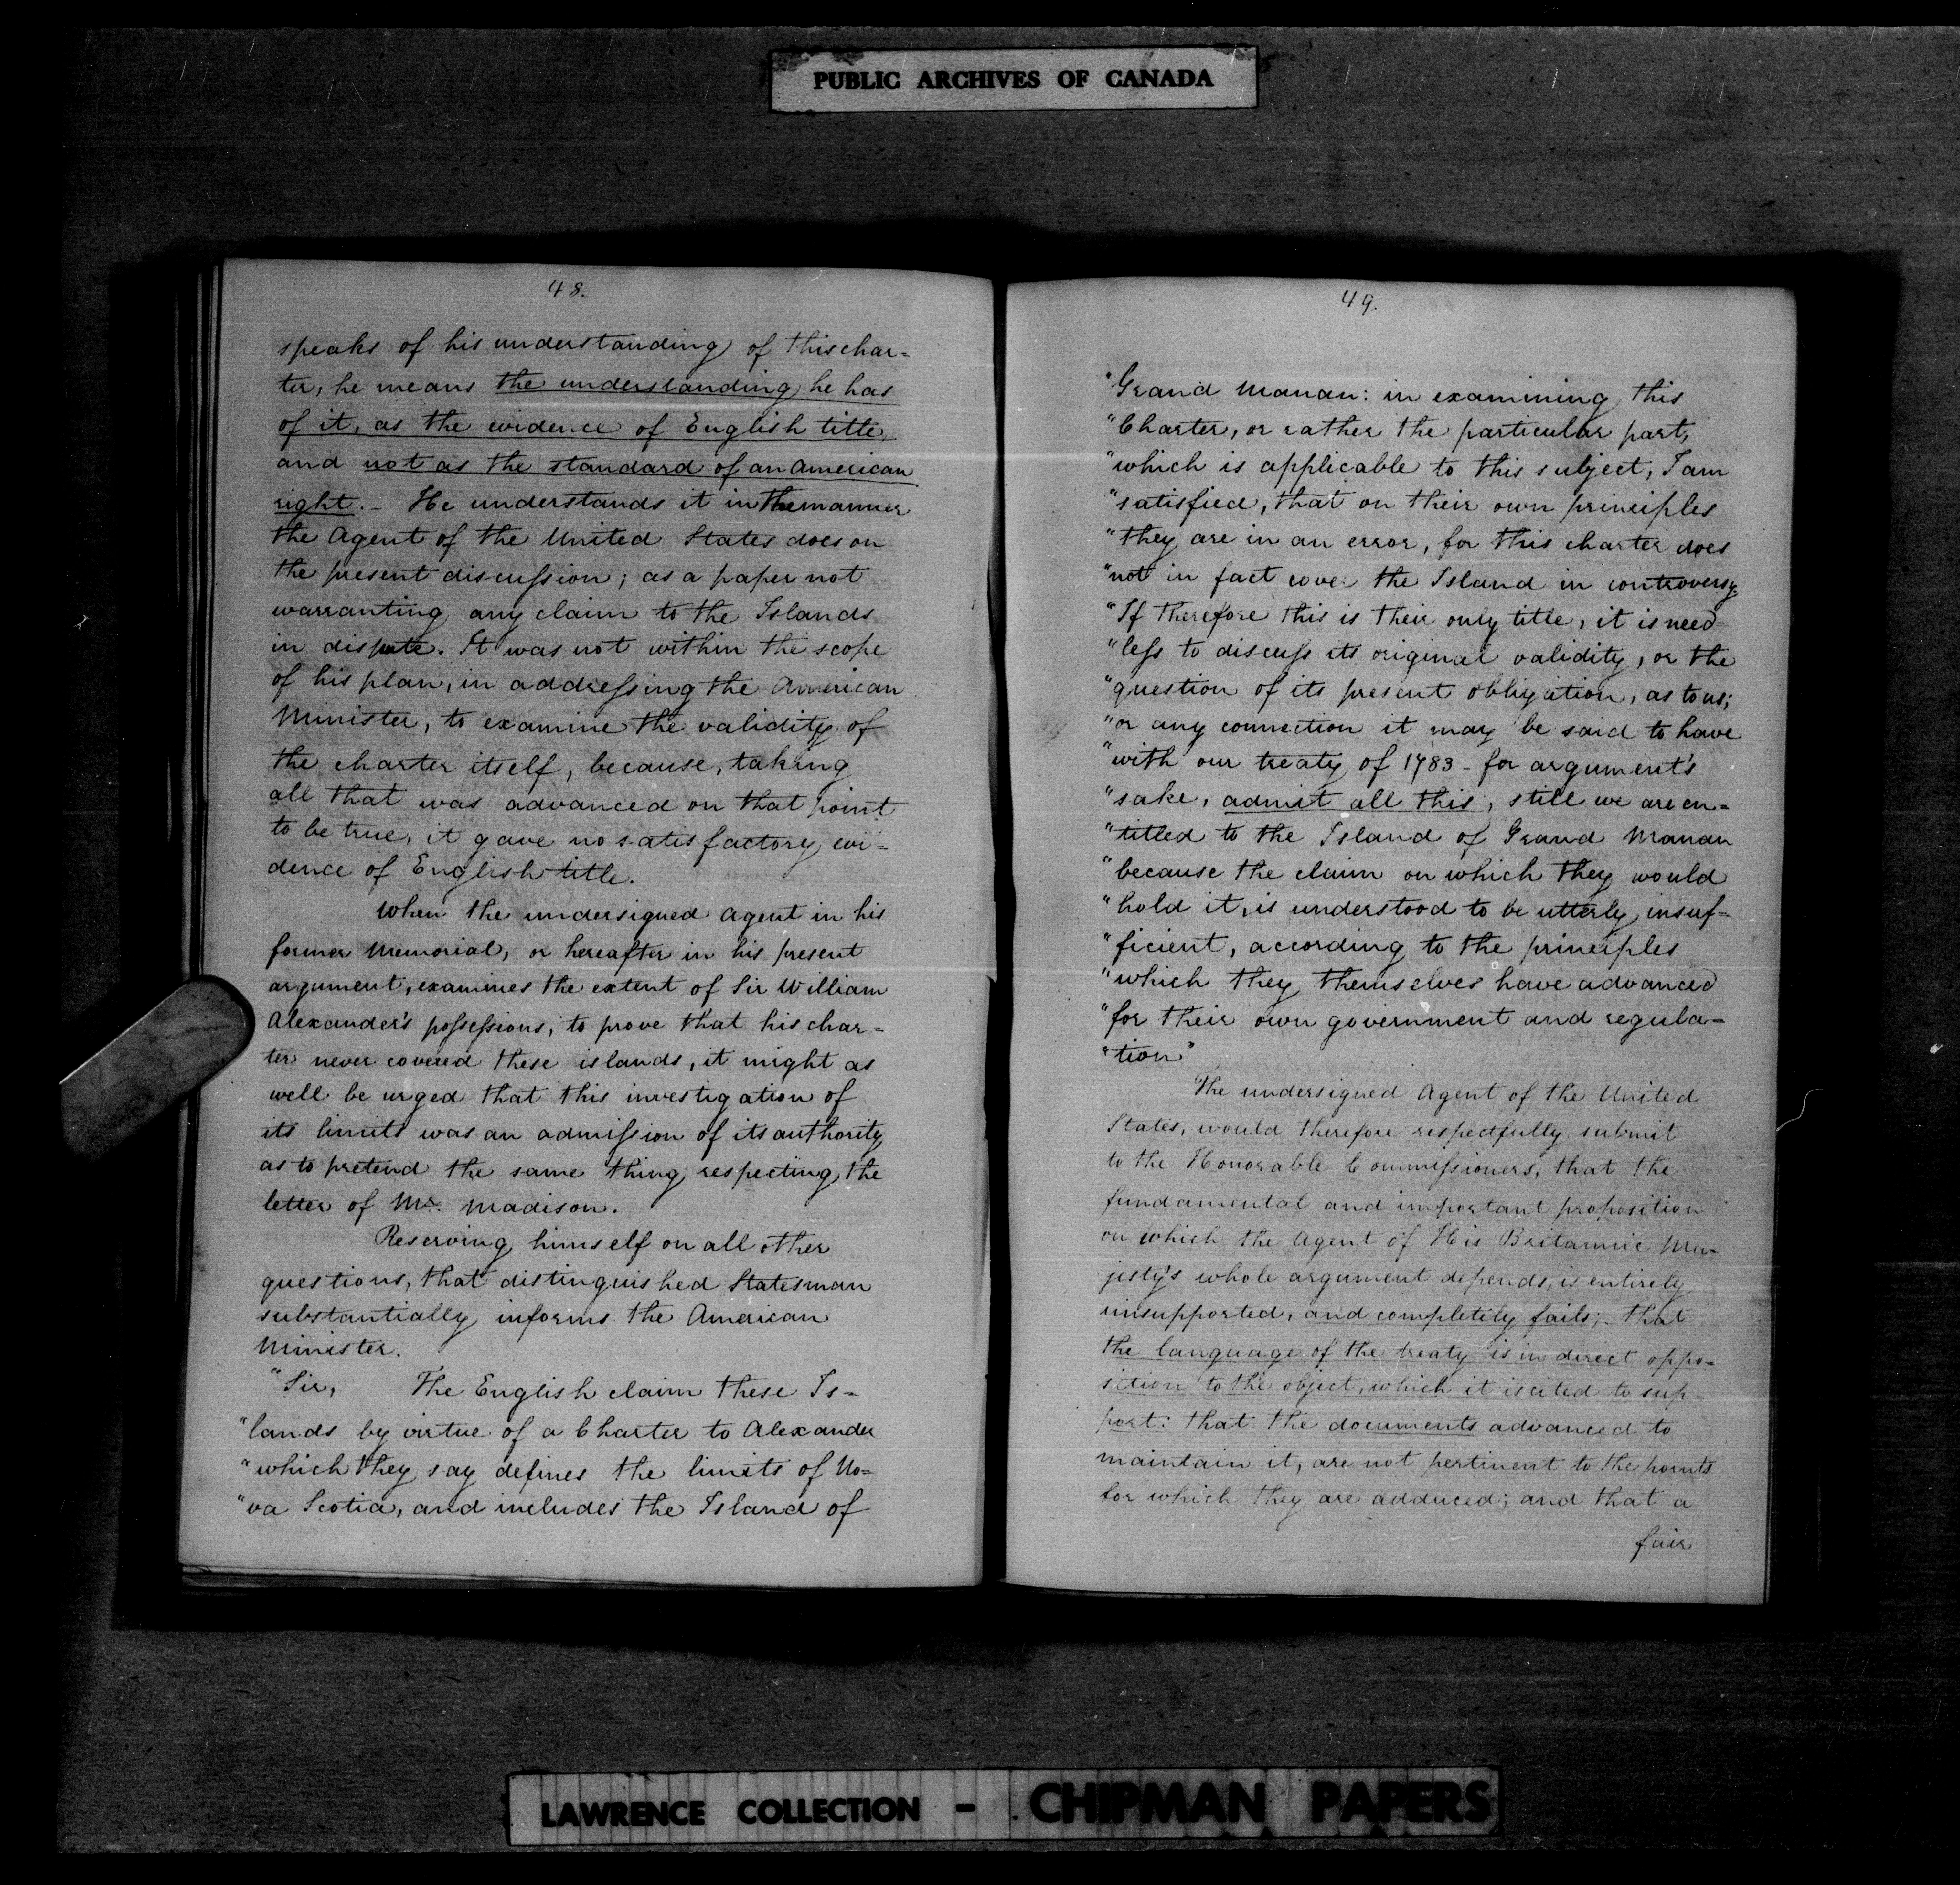 PUBLIC ARCHIVES OF CANADA
48.
speaks of his understanding of this char-
ter, he means the understanding he has
of it, as the evidence of English title,
and not as the standard of an American
right. - He understands it in the manner
the Agent of the United States does on
the present discussion; as a paper not
warranting any claim to the Islands
in dispute. It was not within the scope
of his plan, in addressing the American
Minister, to examine the validity of
the charter itself, because, taking
all that was advanced on that point
to be true, it gave no satisfactory evi-
dence of English title.
When the undersigned Agent in his
former Memorial, or hereafter in his present
argument, examines the extent of Sir William
Alexander's possessions, to prove that his char-
ter never covered these islands, it might as
well be urged that this investigation of
its limits was an admission of its authority
as to pretend the same thing respecting the
letter of Mr. Madison.
Reserving himself on all other
questions, that distinguished Statesman
substantially informs the American
Minister.
"Sir, The English claim these Is-
"lands by virtue of a Charter to Alexander
"which they say defines the limits of No-
"va Scotia, and includes the Island of
49.
"Grand Manan: in examining this
"Charter, or rather the particular part,
"which is applicable to this subject, I am
"satisfied, that on their own principles
"they are in an error, for this charter does
"not in fact cover the Island in controversy.
"If therefore this is their only title, it is need-
"less to discuss its original validity, or the
"question of its present obligation, as to us;
"or any connection it may be said to have
"with our treaty of 1783 - for argument's
"sake, admit all this, still we are en-
"titled to the Island of Grand Manan
"because the claim on which they would
"hold it, is understood to be utterly insuf-
"ficient, according to the principles
"which they themselves have advanced
"for their own government and regula-
"tion"
The undersigned Agent of the United
States, would therefore respectfully submit
to the Honorable Commissioners, that the
fundamental and important proposition
on which the Agent of His Britannic Ma-
jesty's whole argument depends, is entirely
unsupported, and completely fails; that
the language of the treaty is in direct oppo-
sition to the object, which it is cited to sup-
port: that the documents advanced to
maintain it, are not pertinent to the points
for which they are adduced; and that a
fair
LAWRENCE COLLECTION - CHIPMAN PAPERS